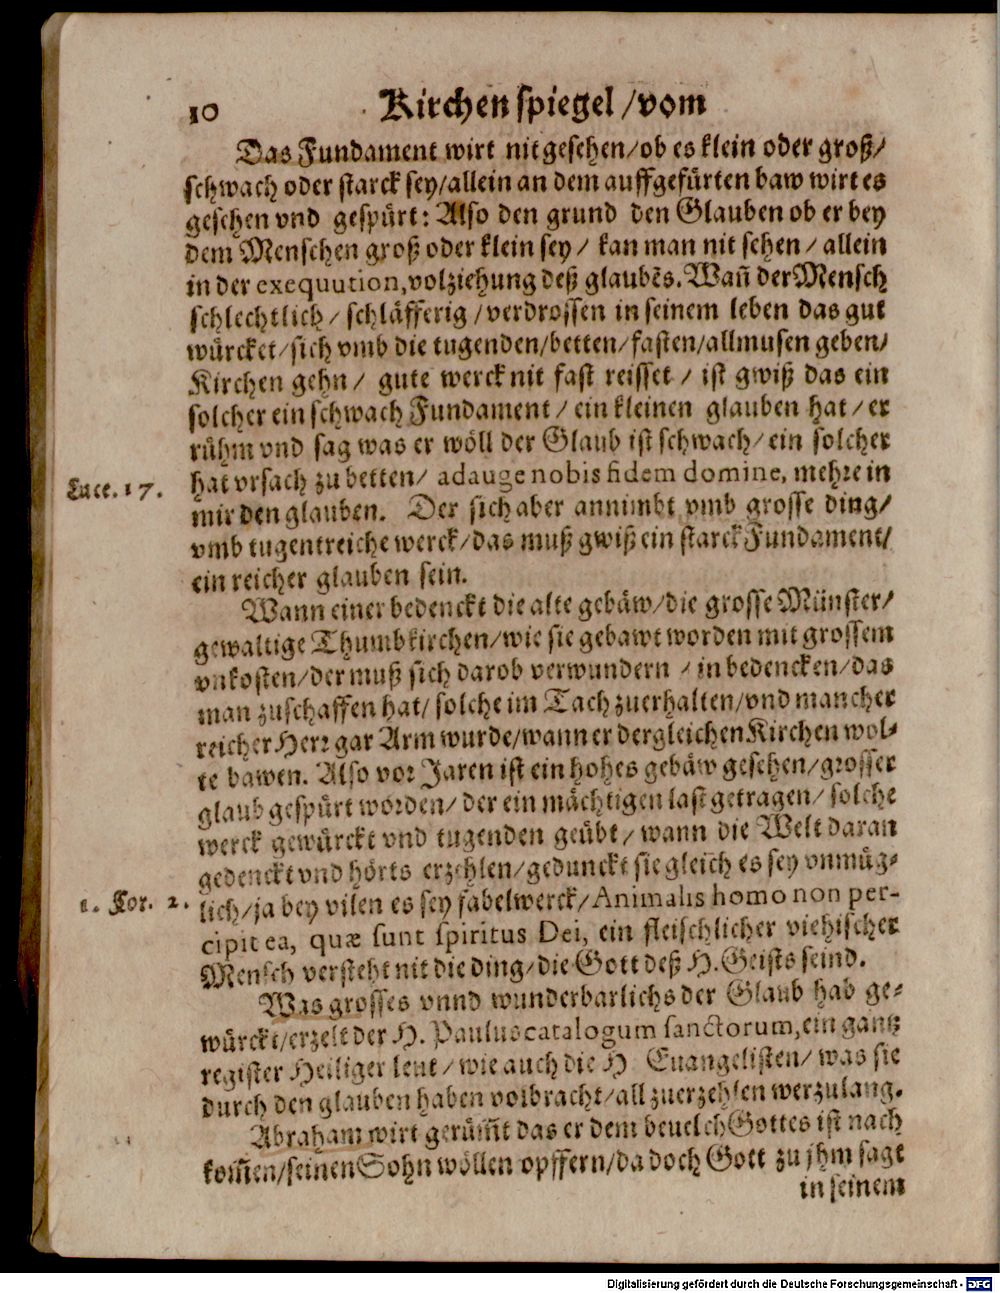 10 Kirchenspiegel / vom
Das Fundament wirt nit gesehen / ob es klein oder groß /
schwach oder starck sey / allein an dem auffgefürten baw wirt es
gesehen vnd gespürt: Also den grund den Glauben ob er bey
dem Menschen groß oder klein sey / kan man nit sehen / allein
in der exequution, volziehung deß glaubēs. Wañ der Mensch
schlechtlich / schläfferig / verdrossen in seinem leben das gut
würcket / sich vmb die tugenden / betten / fasten / allmusen geben /
Kirchen gehn / gute werck nit fast reisset / ist gwiß das ein
solcher ein schwach Fundament / ein kleinen glauben hat / er
rühm vnd sag was er wöll der Glaub ist schwach / ein solcher
hat vrsach zu betten / adauge nobis fidem domine, mehre in
Luce. 17.
mir den glauben. Der sich aber annimbt vmb grosse ding /
vmb tugentreiche werck / das muß gwiß ein starck Fundament /
ein reicher glauben sein.
Wann einer bedenckt die alte gebäw / die grosse Münster /
gewaltige Thumbkirchen / wie sie gebawt worden mit grossem
vnkosten / der muß sich darob verwundern / in bedencken / das
man zuschaffen hat / solche im Tach zuerhalten / vnd mancher
reicher Herr gar Arm wurde / wann er dergleichen Kirchen wol-
te bawen. Also vor Jaren ist ein hohes gebäw gesehen / grosser
glaub gespürt worden / der ein mächtigen last getragen / solche
werck gewürckt vnd tugenden geübt / wann die Welt daran
gedenckt vnd hörts erzehlen / gedunckt sie gleich es sey vnmüg-
lich / ja bey vilen es sey fabelwerck / Animalis homo non per-
1. Cor. 2.
cipit ea, quæ sunt spiritus Dei, ein fleischlicher viehischer
Mensch versteht nit die ding / die Gott deß H. Geists seind.
Was grosses vnnd wunderbarlichs der Glaub hab ge-
würckt / erzelt der H. Paulus catalogum sanctorum, ein gantz
register Heiliger leut / wie auch die H Euangelisten / was sie
durch den glauben haben volbracht / all zuerzehlen wer zu lang.
Abraham wirt gerüm̃t das er dem beuelch Gottes ist nach
kom̃en / seinen Sohn wöllen opffern / da doch Gott zu jhm sagt
in seinem
Digitalisierung gefördert durch die Deutsche Forschungsgemeinschaft - DFG